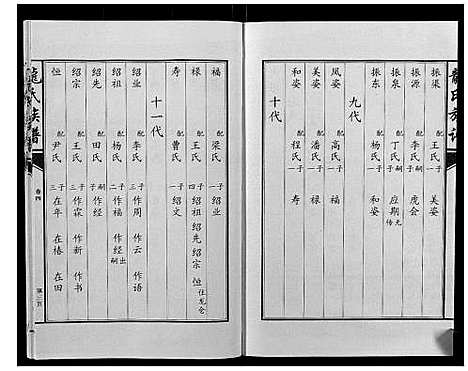 振渠 配王氏 一子 美姿
振源 配李氏 一子 虎会
振泉 配丁氏 嗣子 应期
振东 配杨氏 一子 和姿
九代
凤姿 配高氏 一子 福
美姿 配潘氏 一子 禄
和姿 配程氏 一子 寿
十代
福 配梁氏 一子 绍业
禄 配王氏 四子 绍祖 绍先 绍宗 恒
寿 配曹氏 一子 绍文
十一代
绍业 配李氏 三子 作周 作云 作语
绍祖 配杨氏 二子 作福 作经出嗣
绍先 配田氏 嗣子 作经
绍宗 配王氏 三子 作霖 作新 作书
恒 配尹氏 三子 在年 在椿 在田
龙氏族谱
卷四